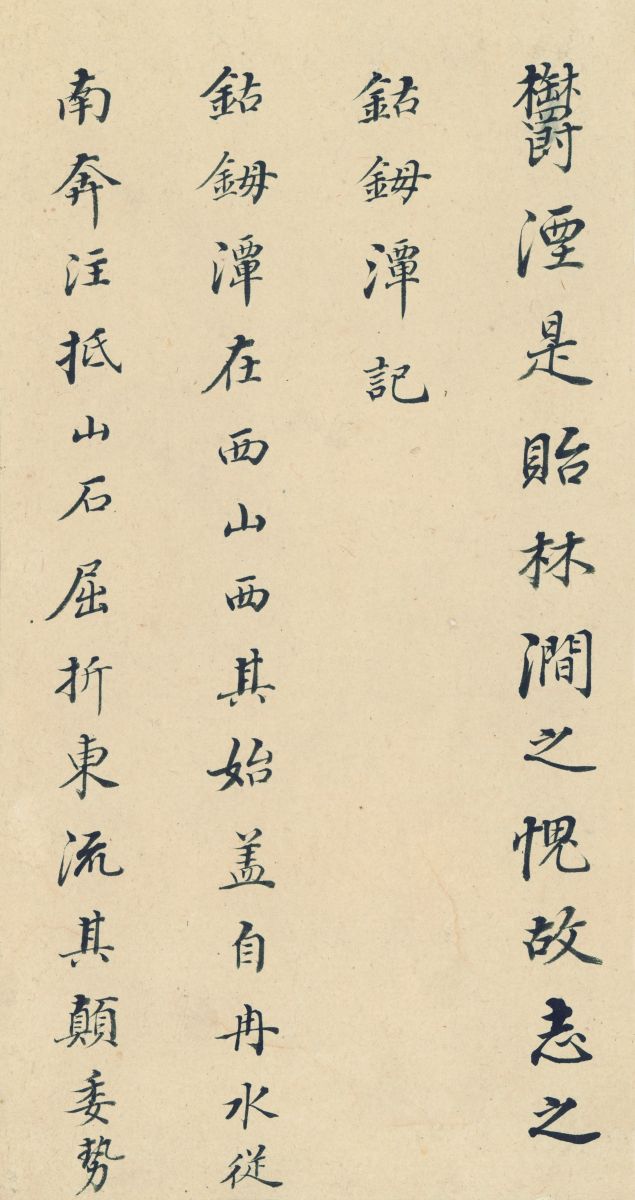 欝湮是貽林澗之愧故志之
鈷鉧潭記
鈷鉧潭在西山西其始盖自冉水従
南奔注抵山石屈折東流其顛委勢